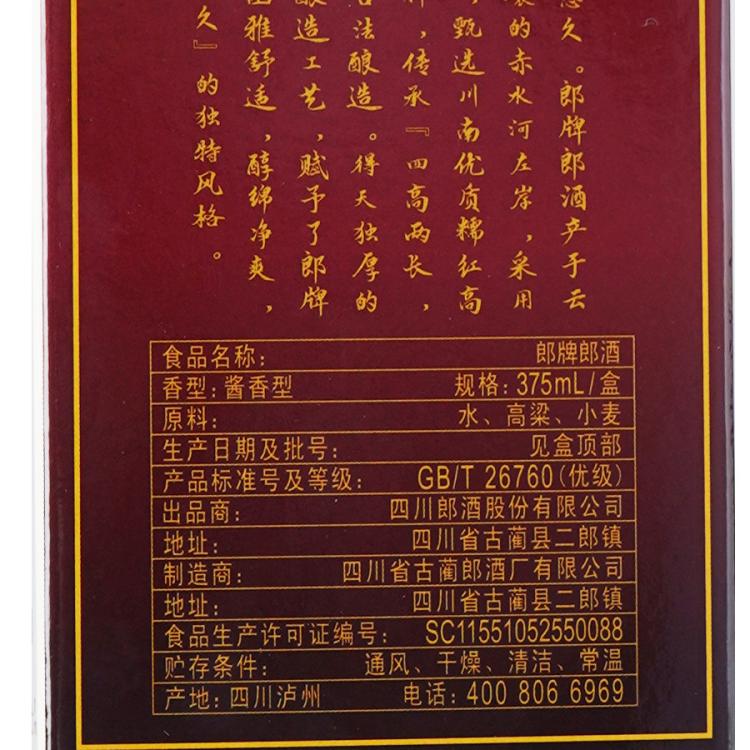 悠久。郎牌郎酒产于云
的赤水河左岸，采用
，甄选川南优质糯红高
，传承『四高两长，
古法酿造。得天独厚的
酿造工艺，赋予了郎牌
雅舒适，醇绵净爽，
久』的独特风格。
食品名称： 郎牌郎酒
香型：酱香型 规格：375mL/盒
原料： 水、高粱、小麦
生产日期及批号： 见盒顶部
产品标准号及等级： GB/T 26760(优级)
出品商： 四川郎酒股份有限公司
地址： 四川省古蔺县二郎镇
制造商： 四川省古蔺郎酒厂有限公司
地址： 四川省古蔺县二郎镇
食品生产许可证编号： SC11551052550088
贮存条件： 通风、干燥、清洁、常温
产地：四川泸州 电话：400 806 6969